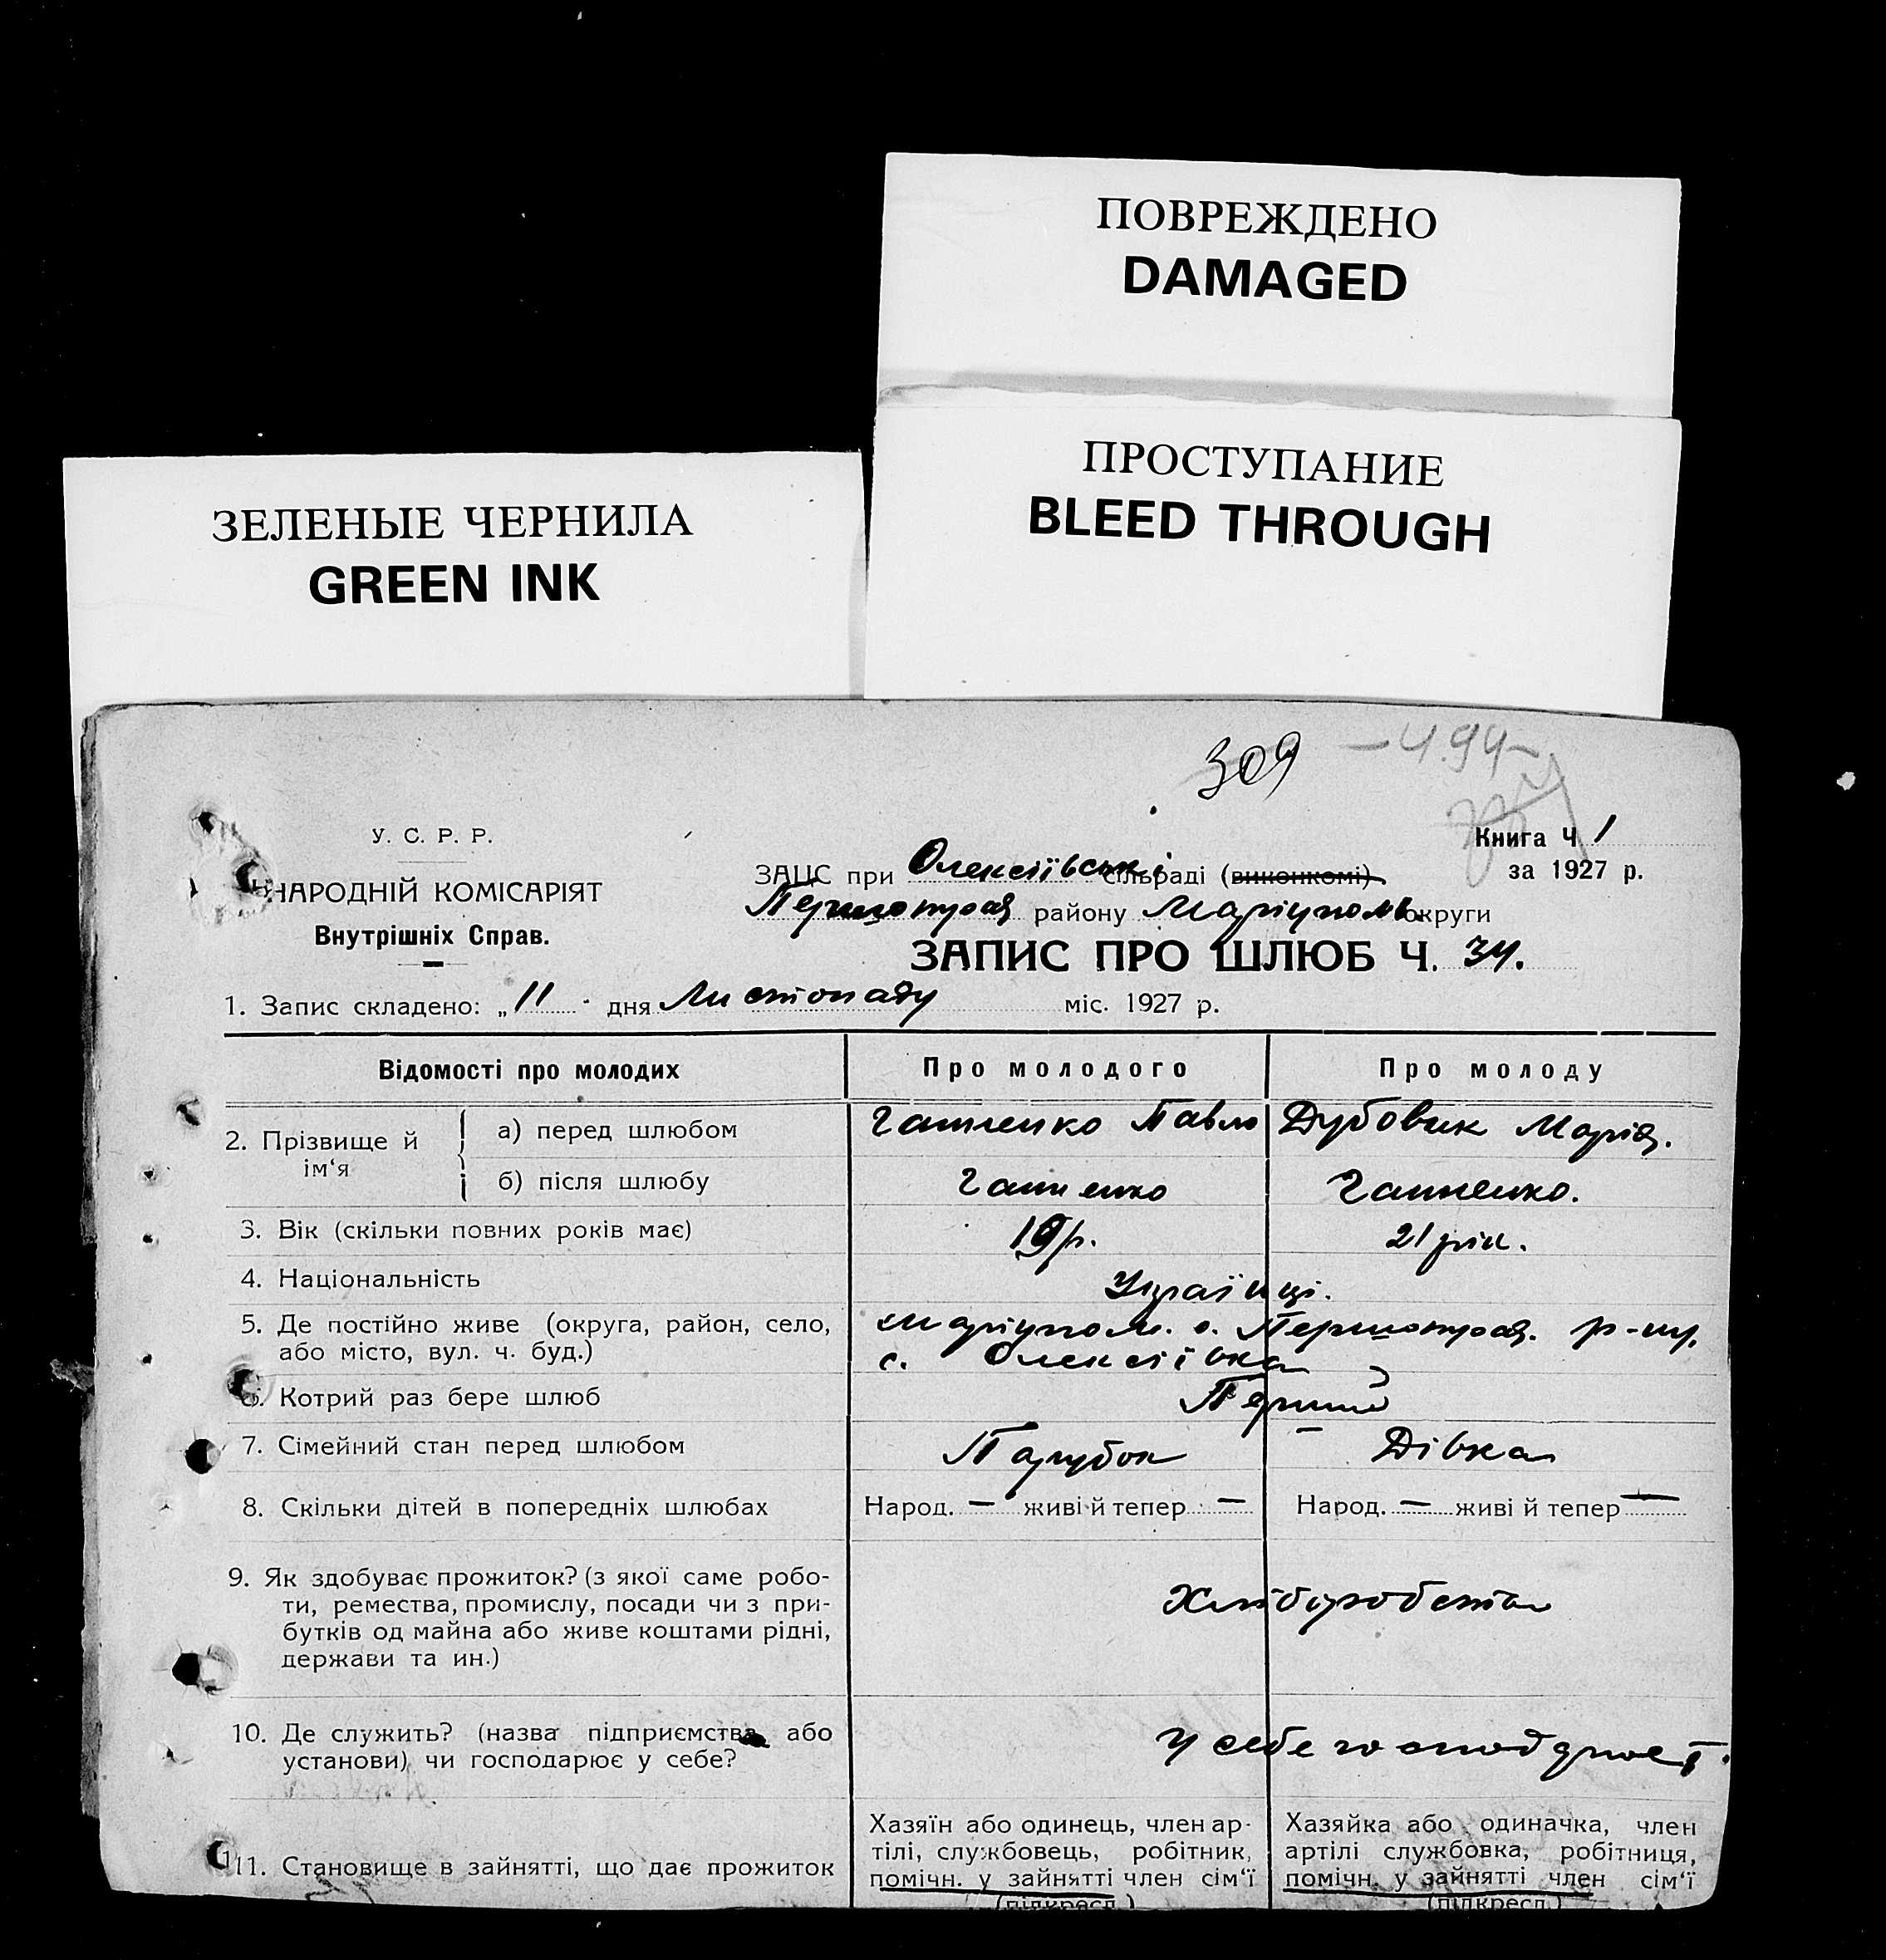 ПОВРЕЖДЕНО
DAMAGED
ПРОСТУПАНИЕ
BLEED THROUGH
ЗЕЛЕНЫЕ ЧЕРНИЛА
GREEN INK
309 -494-
У. С. Р. Р.
НАРОДНІЙ КОМІСАРІЯТ
Внутрішніх Справ.
Книга Ч. 1
за 1927 р.
ЗАЦС при Олексіївській сільраді (виконкомі)
району Маріупольс. округи
ЗАПИС ПРО ШЛЮБ Ч. 34.
1. Запис складено: „11" дня Листопаду міс. 1927 р.
Відомості про молодих Про молодого Про молоду
2. Прізвище й ім‘я
а) перед шлюбом Павло Дубовик Марія.
б) після шлюбу
3. Вік (скільки повних років має) 19 р. 21 рік.
4. Національність Українці.
5. Де постійно живе (округа, район, село, Маріупол. о. Першотрав. р-ну,
або місто, вул. ч. буд.) с. Олексіївка
6. Котрий раз бере шлюб Перший
7. Сімейний стан перед шлюбом Парубок Дівка
8. Скільки дітей в попередніх шлюбах Народ. — живі й тепер — Народ. — живі й тепер —
9. Як здобуває прожиток? (з якої саме робо-
ти, ремества, промислу, посади чи з при-
бутків од майна або живе коштами рідні,
держави та ин.)
10. Де служить? (назва підприємства або
установи) чи господарює у себе? У себе
11. Становище в зайнятті, що дає прожиток
Хазяїн або одинець, член ар-
тілі, службовець, робітник,
помічн. у зайнятті член сім‘ї
(підкресл.)
Хазяйка або одиначка, член
артілі службовка, робітниця,
помічн. у зайнятті член сім‘ї
(підкресл.)